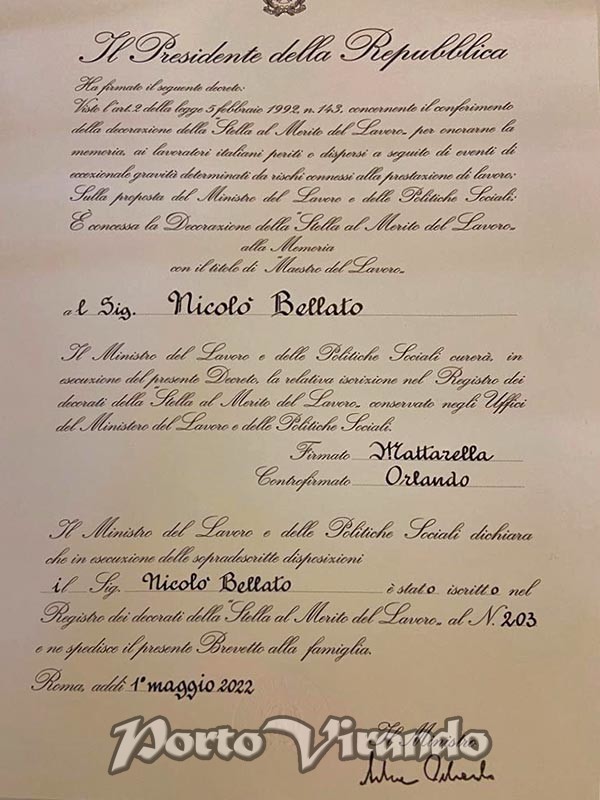 Il Presidente della Repubblica
Ha firmato il seguente decreto:
Visto l'art. 2 della legge 5 febbraio 1992, n. 143, concernente il conferimento
della decorazione della "Stella al Merito del Lavoro" per onorarne la
memoria, ai lavoratori italiani periti o dispersi a seguito di eventi di
eccezionale gravità determinati da rischi connessi alla prestazione di lavoro;
Sulla proposta del Ministro del Lavoro e delle Politiche Sociali;
È concessa la Decorazione della "Stella al Merito del Lavoro"
alla Memoria
con il titolo di "Maestro del Lavoro"
al Sig. Nicolò Bellato
Il Ministro del Lavoro e delle Politiche Sociali curerà, in
esecuzione del presente Decreto, la relativa iscrizione nel Registro dei
decorati della "Stella al Merito del Lavoro" conservato negli Uffici
del Ministero del Lavoro e delle Politiche Sociali.
Firmato Mattarella
Controfirmato Orlando
Il Ministro del Lavoro e delle Politiche Sociali dichiara
che in esecuzione delle sopradescritte disposizioni
il Sig. Nicolò Bellato è stato iscritto nel
Registro dei decorati della "Stella al Merito del Lavoro" al N. 203
e ne spedisce il presente Brevetto alla famiglia.
Roma, addì 1° maggio 2022
Porto Virando
Il Ministro